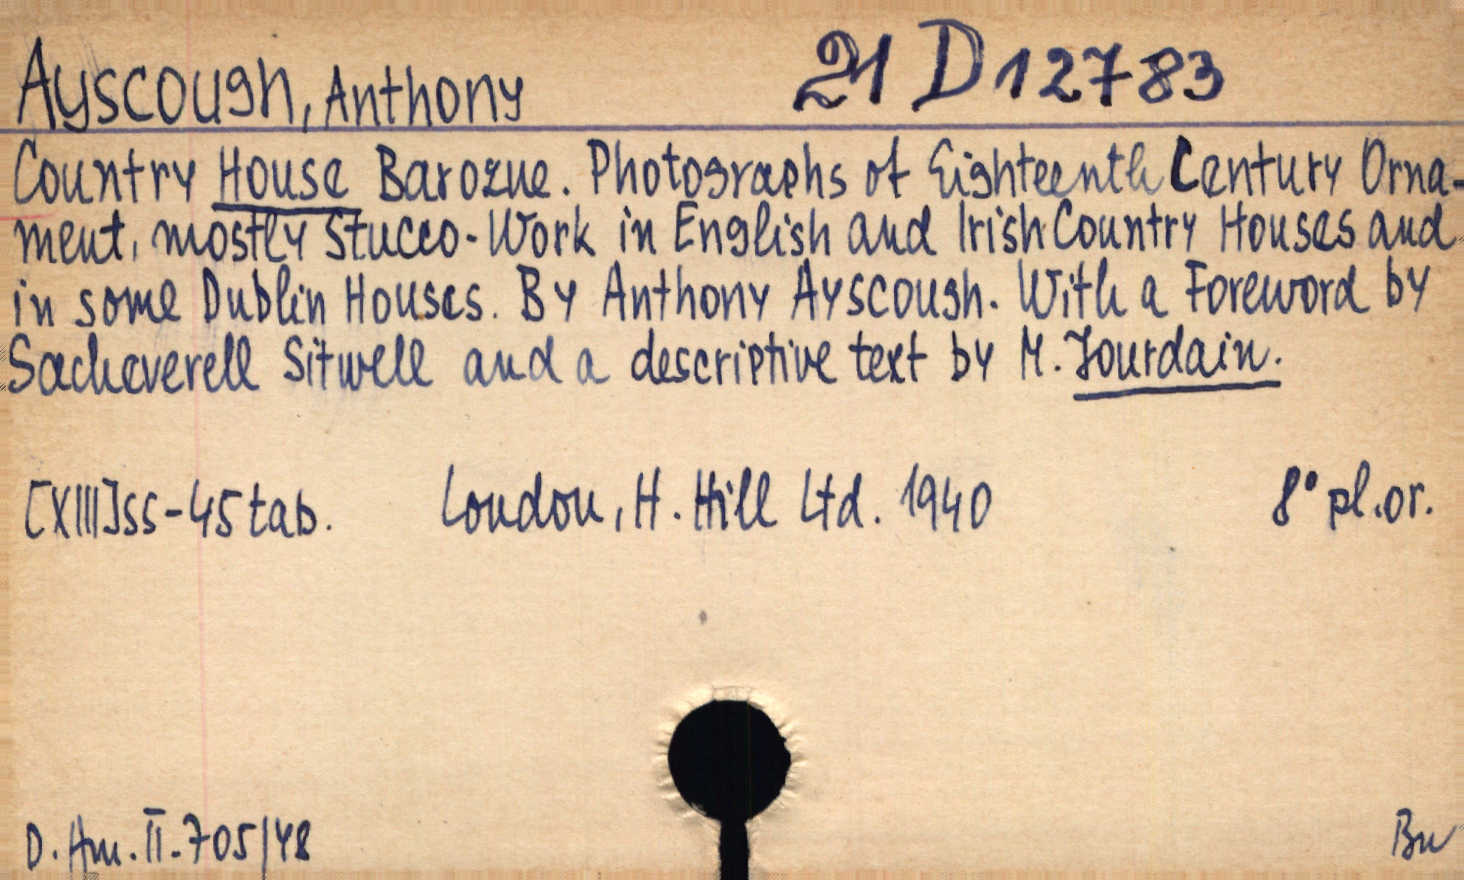 Ayscough, Anthony 21 D 12783
Country House Baroque. Photographs of Eighteenth Century Orna-
ment, mostly Stucco-Work in English and Irish Country Houses and
in some Dublin Houses. By Anthony Ayscough. With a Foreword by
Sacheverell Sitwell and a descriptive text by M. Jourdain.
[XIII]ss-45 tab. London, H. Hill Ltd. 1940 8° pl.or.
D. Am. II.705/48 Bu